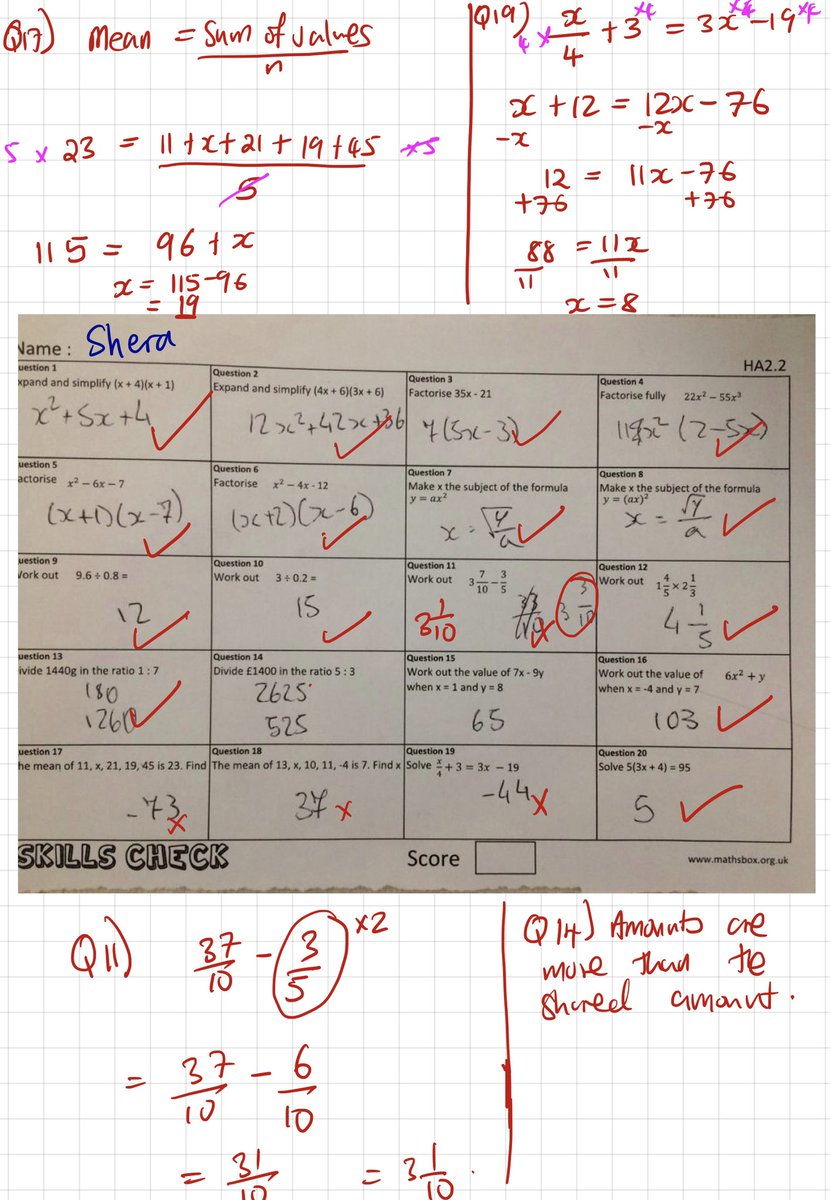 Q17) Mean = Sum of values
n
5 × 23 = 11 + x + 21 + 19 + 45 ×5
5
115 = 96 + x
x = 115-96
= 19
Q19) 4 × x/4 + 3 ×4 = 3x ×4 - 19 ×4
x + 12 = 12x - 76
-x -x
12 = 11x - 76
+76 +76
88 = 11x
11 11
x = 8
Name : Shera
HA2.2
uestion 1
xpand and simplify (x + 4)(x + 1)
x² + 5x + 4
Question 2
Expand and simplify (4x + 6)(3x + 6)
12x² + 42x + 36
Question 3
Factorise 35x - 21
7(5x - 3)
Question 4
Factorise fully 22x² – 55x³
11x² (2 - 5x)
uestion 5
actorise x² – 6x – 7
(x+1)(x-7)
Question 6
Factorise x² – 4x - 12
(x+2)(x-6)
Question 7
Make x the subject of the formula
y = ax²
x = √y/a
Question 8
Make x the subject of the formula
y = (ax)²
x = √y/a
uestion 9
Work out 9.6 ÷ 0.8 =
12
Question 10
Work out 3 ÷ 0.2 =
15
Question 11
Work out 3 7/10 - 3/5
3 1/10 3 3/10
Question 12
Work out 1 4/5 × 2 1/3
4 1/5
uestion 13
ivide 1440g in the ratio 1 : 7
180
1260
Question 14
Divide £1400 in the ratio 5 : 3
2625
525
Question 15
Work out the value of 7x - 9y
when x = 1 and y = 8
65
Question 16
Work out the value of 6x² + y
when x = -4 and y = 7
103
uestion 17
he mean of 11, x, 21, 19, 45 is 23. Find
-73
Question 18
The mean of 13, x, 10, 11, -4 is 7. Find x
37
Question 19
Solve x/4 + 3 = 3x – 19
-44
Question 20
Solve 5(3x + 4) = 95
5
SKILLS CHECK
Score
www.mathsbox.org.uk
Q11) 37/10 - 3/5 ×2
= 37/10 - 6/10
= 31/10 = 3 1/10.
Q14) Amounts are
more than the
shared amount.